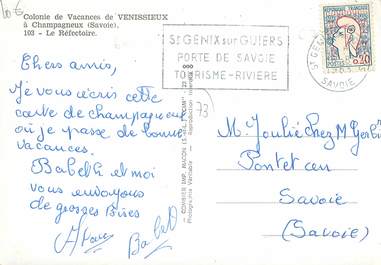 10€
Colonie de Vacances de VENISSIEUX
à Champagneux (Savoie).
103 - Le Réfectoire.
St GENIX sur GUIERS
PORTE DE SAVOIE
TOURISME-RIVIERE
St GENIX
SAVOIE
0,20
Chers amis,
Je vous écris cette
carte de champagneux
où je passe de bonne
vacances.
Babeth et moi
vous envoyons
de grosses Bises
Babeth
73
COMBIER IMP. MACON
Reproduction interdite
M. Joulié chez M.
Pontet cen
Savoie
(Savoie)